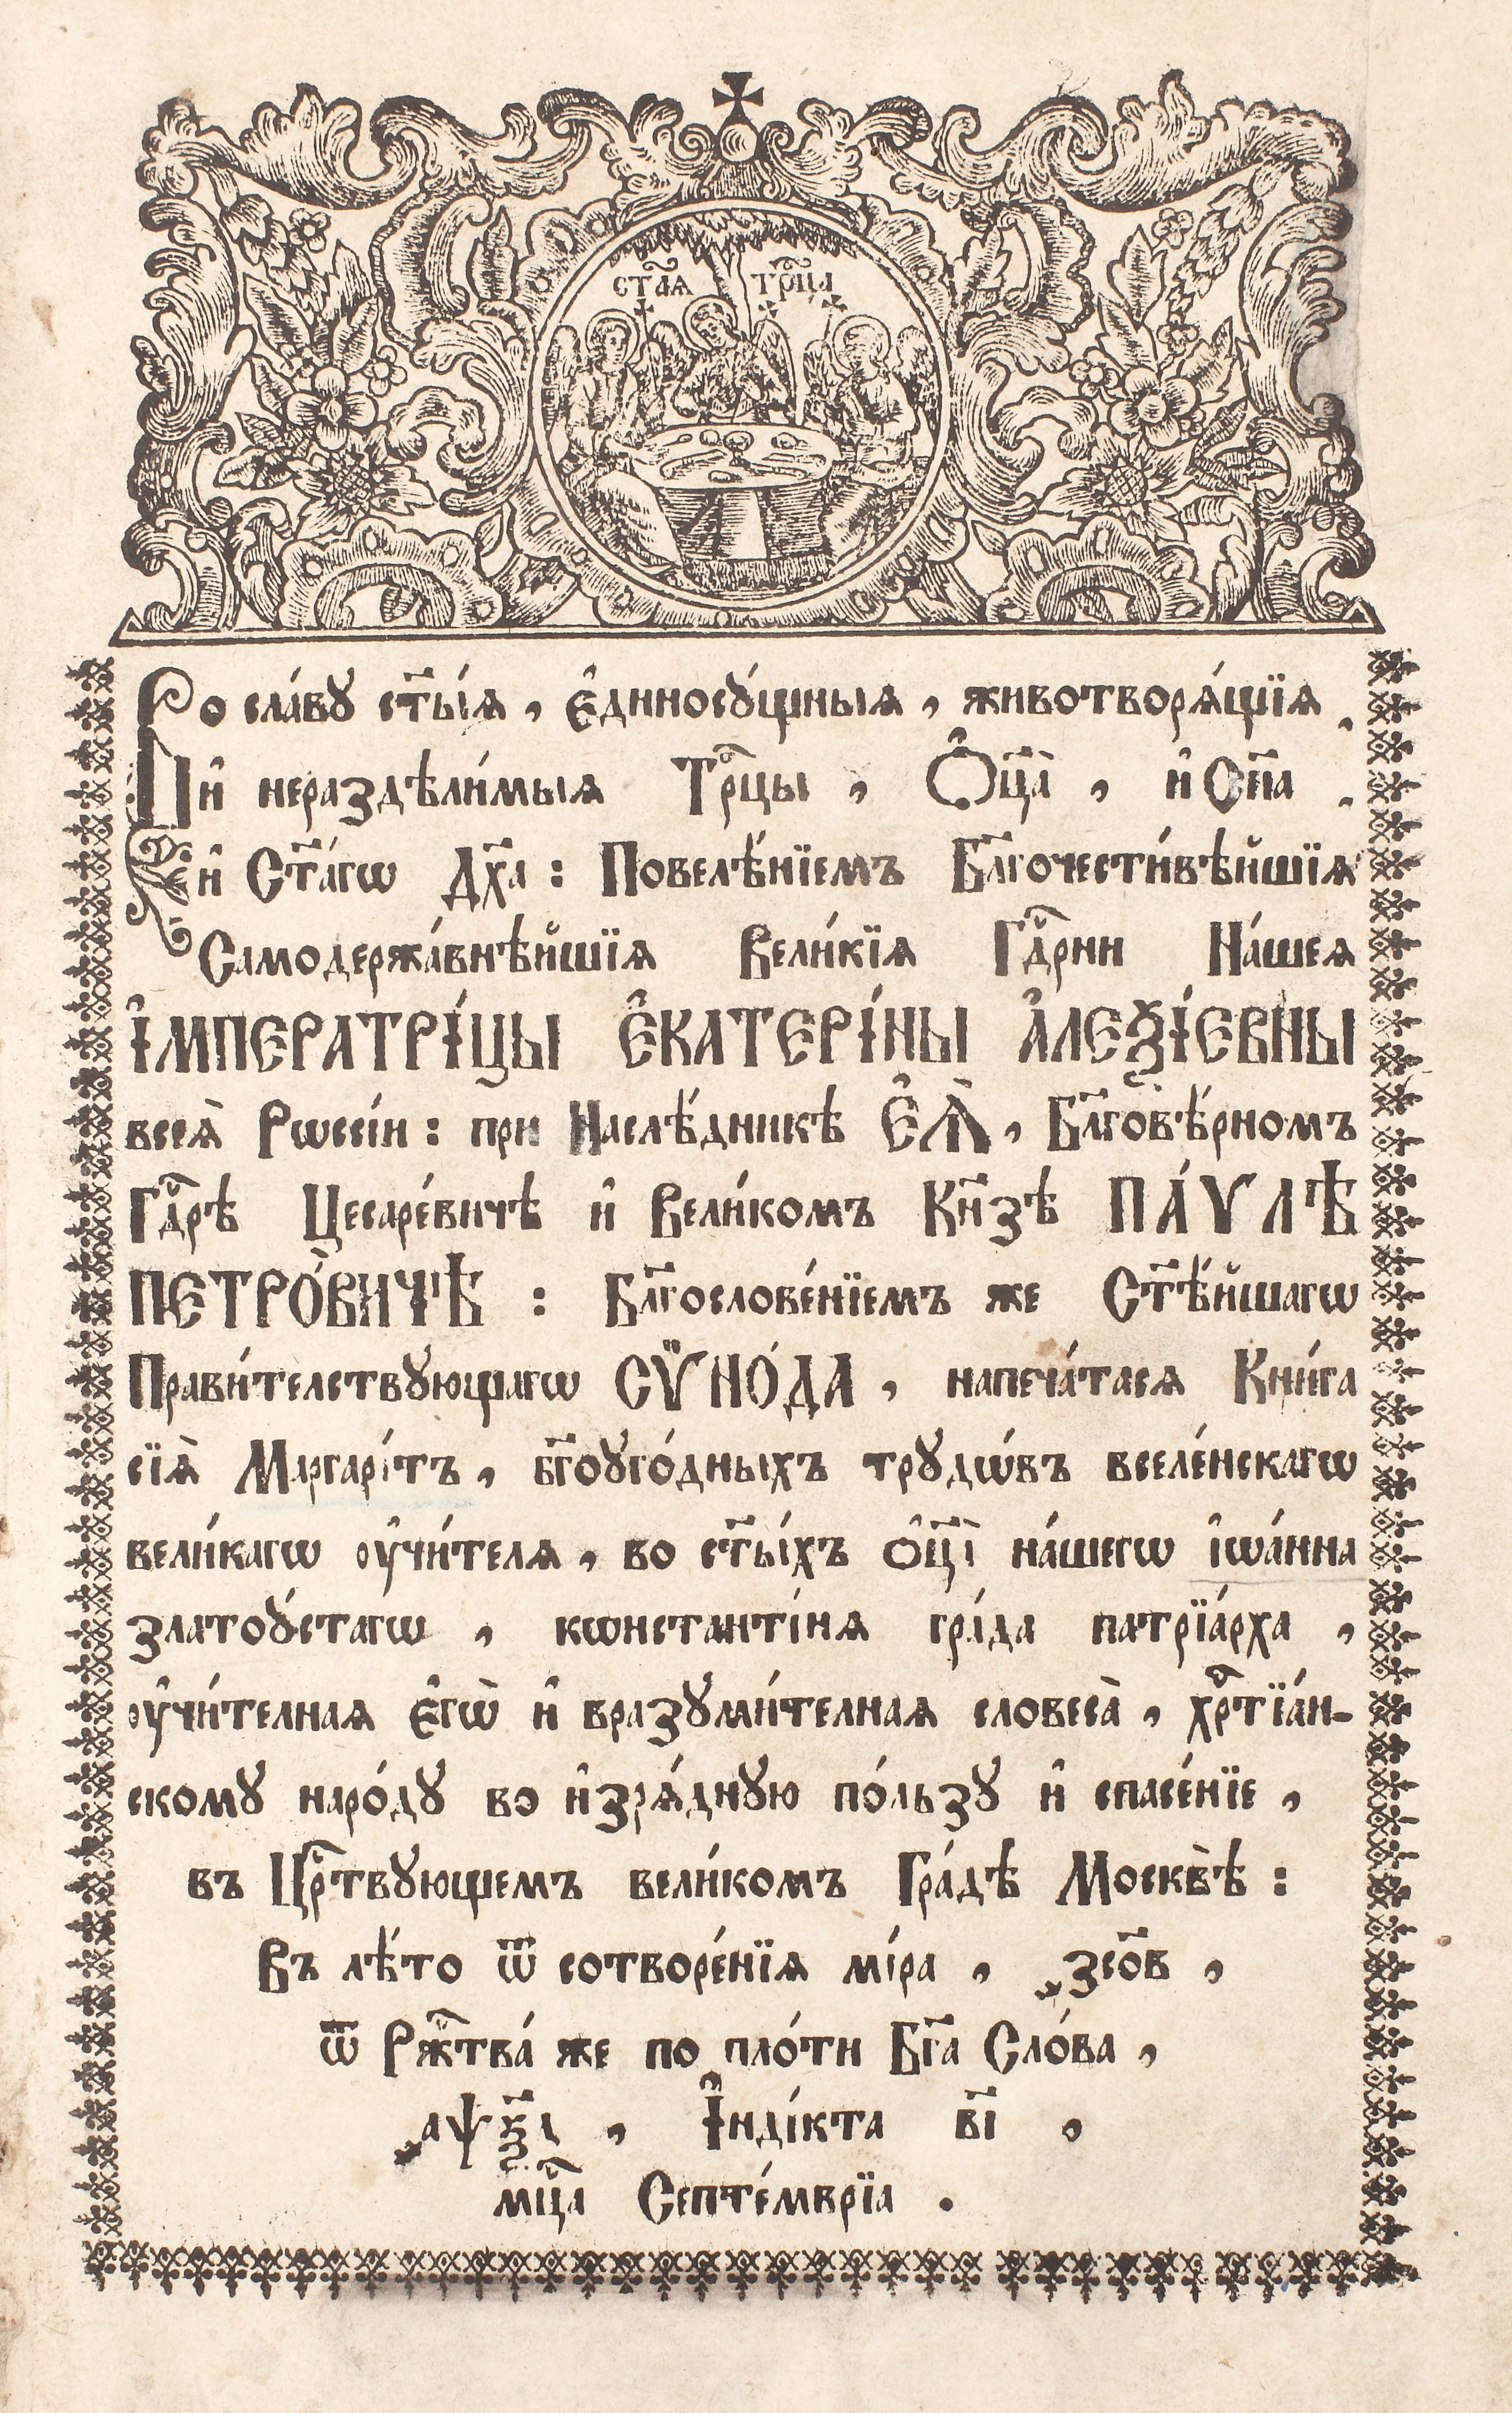 ст҃аѧ трⷪ҇ца
Во сла́вꙋ ст҃ы́ѧ, є҆диносꙋ́щныѧ, животворѧ́щїѧ,
и҆ нераздѣли́мыѧ Трⷪ҇цы, Ѻ҆ц҃а̀, и҆ Сн҃а,
и҆ Ст҃а́гѡ Дх҃а: Повелѣ́нїемъ Бл҃гочести́вѣйшїѧ
Самодержа́внѣйшїѧ Вели́кїѧ Гдⷭ҇рни На́шеѧ
І҆МПЕРАТРІ́ЦЫ Є҆КАТЕРІ́НЫ А҆ЛЕѮІ́ЕВНЫ
всеѧ̀ Рѡссі́и: при Наслѣ́дникѣ Є҆Ѧ̀, Бл҃говѣ́рномъ
Гдⷭ҇рѣ Цесаре́вичѣ и҆ Вели́комъ Кн҃зѣ ПА́ѴЛѢ
ПЕТРО́ВИЧѢ: Бл҃гослове́нїемъ же Ст҃ѣ́йшагѡ
Прави́телствꙋющагѡ СѴ̈НО́ДА, напеча́тасѧ Кни́га
сїѧ̀ Маргарі́тъ, бг҃оꙋго́дныхъ трꙋдѡ́въ вселе́нскагѡ
вели́кагѡ ᲂу҆чи́телѧ, во ст҃ы́хъ ѻ҆ц҃а̀ на́шегѡ і҆ѡа́нна
златоꙋ́стагѡ, кѡнстанті́нѧ гра́да патрїа́рха,
ᲂу҆чи́телнаѧ є҆гѡ̀ и҆ вразꙋми́телнаѧ словеса̀, хрⷭ҇тїа́н-
скомꙋ наро́дꙋ во и҆зрѧ́днꙋю по́льзꙋ и҆ спасе́нїе,
въ Црⷭ҇твꙋющемъ вели́комъ Гра́дѣ Москвѣ̀:
Въ лѣ́то ѿ сотворе́нїѧ мі́ра, ҂зсо҃в,
ѿ Ржⷭ҇тва́ же по пло́ти Бг҃а Сло́ва,
҂аѱѯ҃д, І҆нді́кта в҃і,
мцⷭ҇а Септе́мврїа.